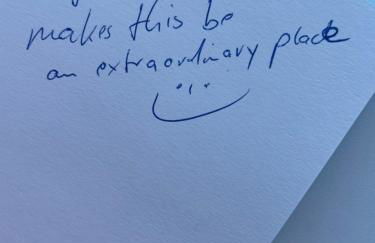 makes this be
an extraordinary place